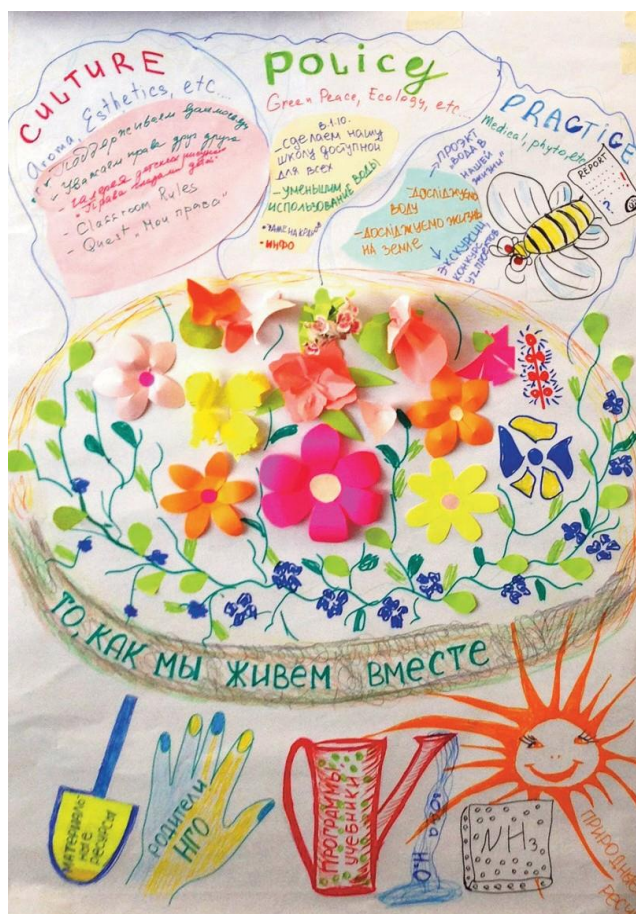 CULTURE
Aroma, Esthetics, etc...
Поддерживаем
Уважаем права друг друга
"Права
- Classroom Rules
- Quest "Мои права"
POLICY
Green Peace, Ecology, etc...
- сделаем нашу
школу доступной
для всех
- уменьшим
использование воды
• ИНФО
PRACTICE
Medical, phyto, etc
ПРОЭКТ
"ВОДА В
НАШЕЙ
ЖИЗНИ"
- ДОСЛІДЖУЄМО
ВОДУ
- ДОСЛІДЖУЄМО ЖИЗНЬ
НА ЗЕМЛЕ
ЭКСКУРСИИ
КОНКУРС
REPORT
?
ТО, КАК МЫ ЖИВЕМ ВМЕСТЕ
МАТЕРИАЛЬ
НЫЕ
РЕСУРСЫ
РОДИТЕЛИ
НГО
ПРОГРАММЫ,
УЧЕБНИКИ
NH3
ПРИРОДНЫЕ